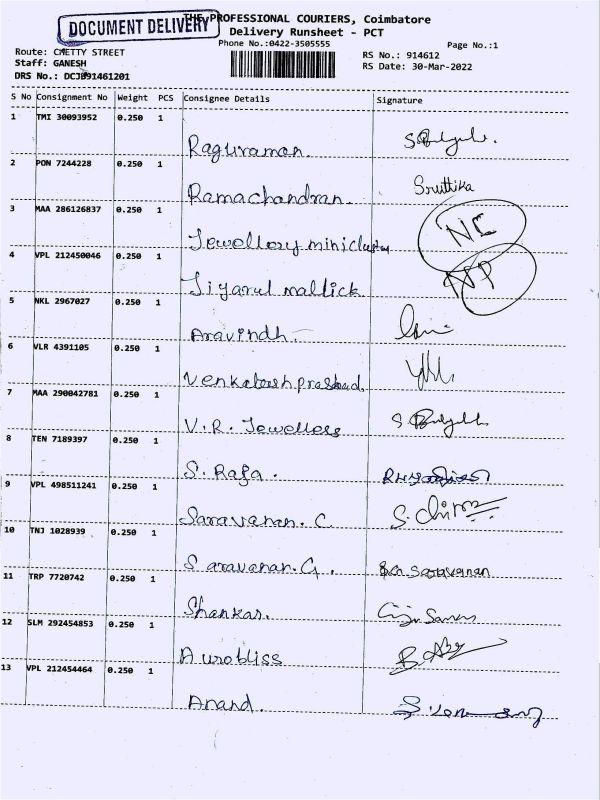 DOCUMENT DELIVERY
THE PROFESSIONAL COURIERS, Coimbatore
Delivery Runsheet - PCT
Phone No.:0422-3505555
Page No.:1
Route: CHETTY STREET
RS No.: 914612
Staff: GANESH
RS Date: 30-Mar-2022
DRS No.: DCJ091461201
S No Consignment No Weight PCS Consignee Details Signature
1 TMI 30093952 0.250 1
Raguraman.
2 PON 7244228 0.250 1
Ramachandran. Sruthika
3 MAA 286126837 0.250 1
Jewellery minicluster NC
4 VPL 212450046 0.250 1
Jiyarul mallick NP
5 NKL 2967027 0.250 1
Aravindh.
6 VLR 4391105 0.250 1
Venkateshprashad.
7 MAA 290042781 0.250 1
V.R. Jewellers
8 TEN 7189397 0.250 1
S. Raja.
9 VPL 498511241 0.250 1
Saravanan. C
10 TNJ 1028939 0.250 1
Saravanan. G. Saravanan
11 TRP 7720742 0.250 1
Shankar.
12 SLM 292454853 0.250 1
Aurobliss
13 VPL 212454464 0.250 1
Anand.